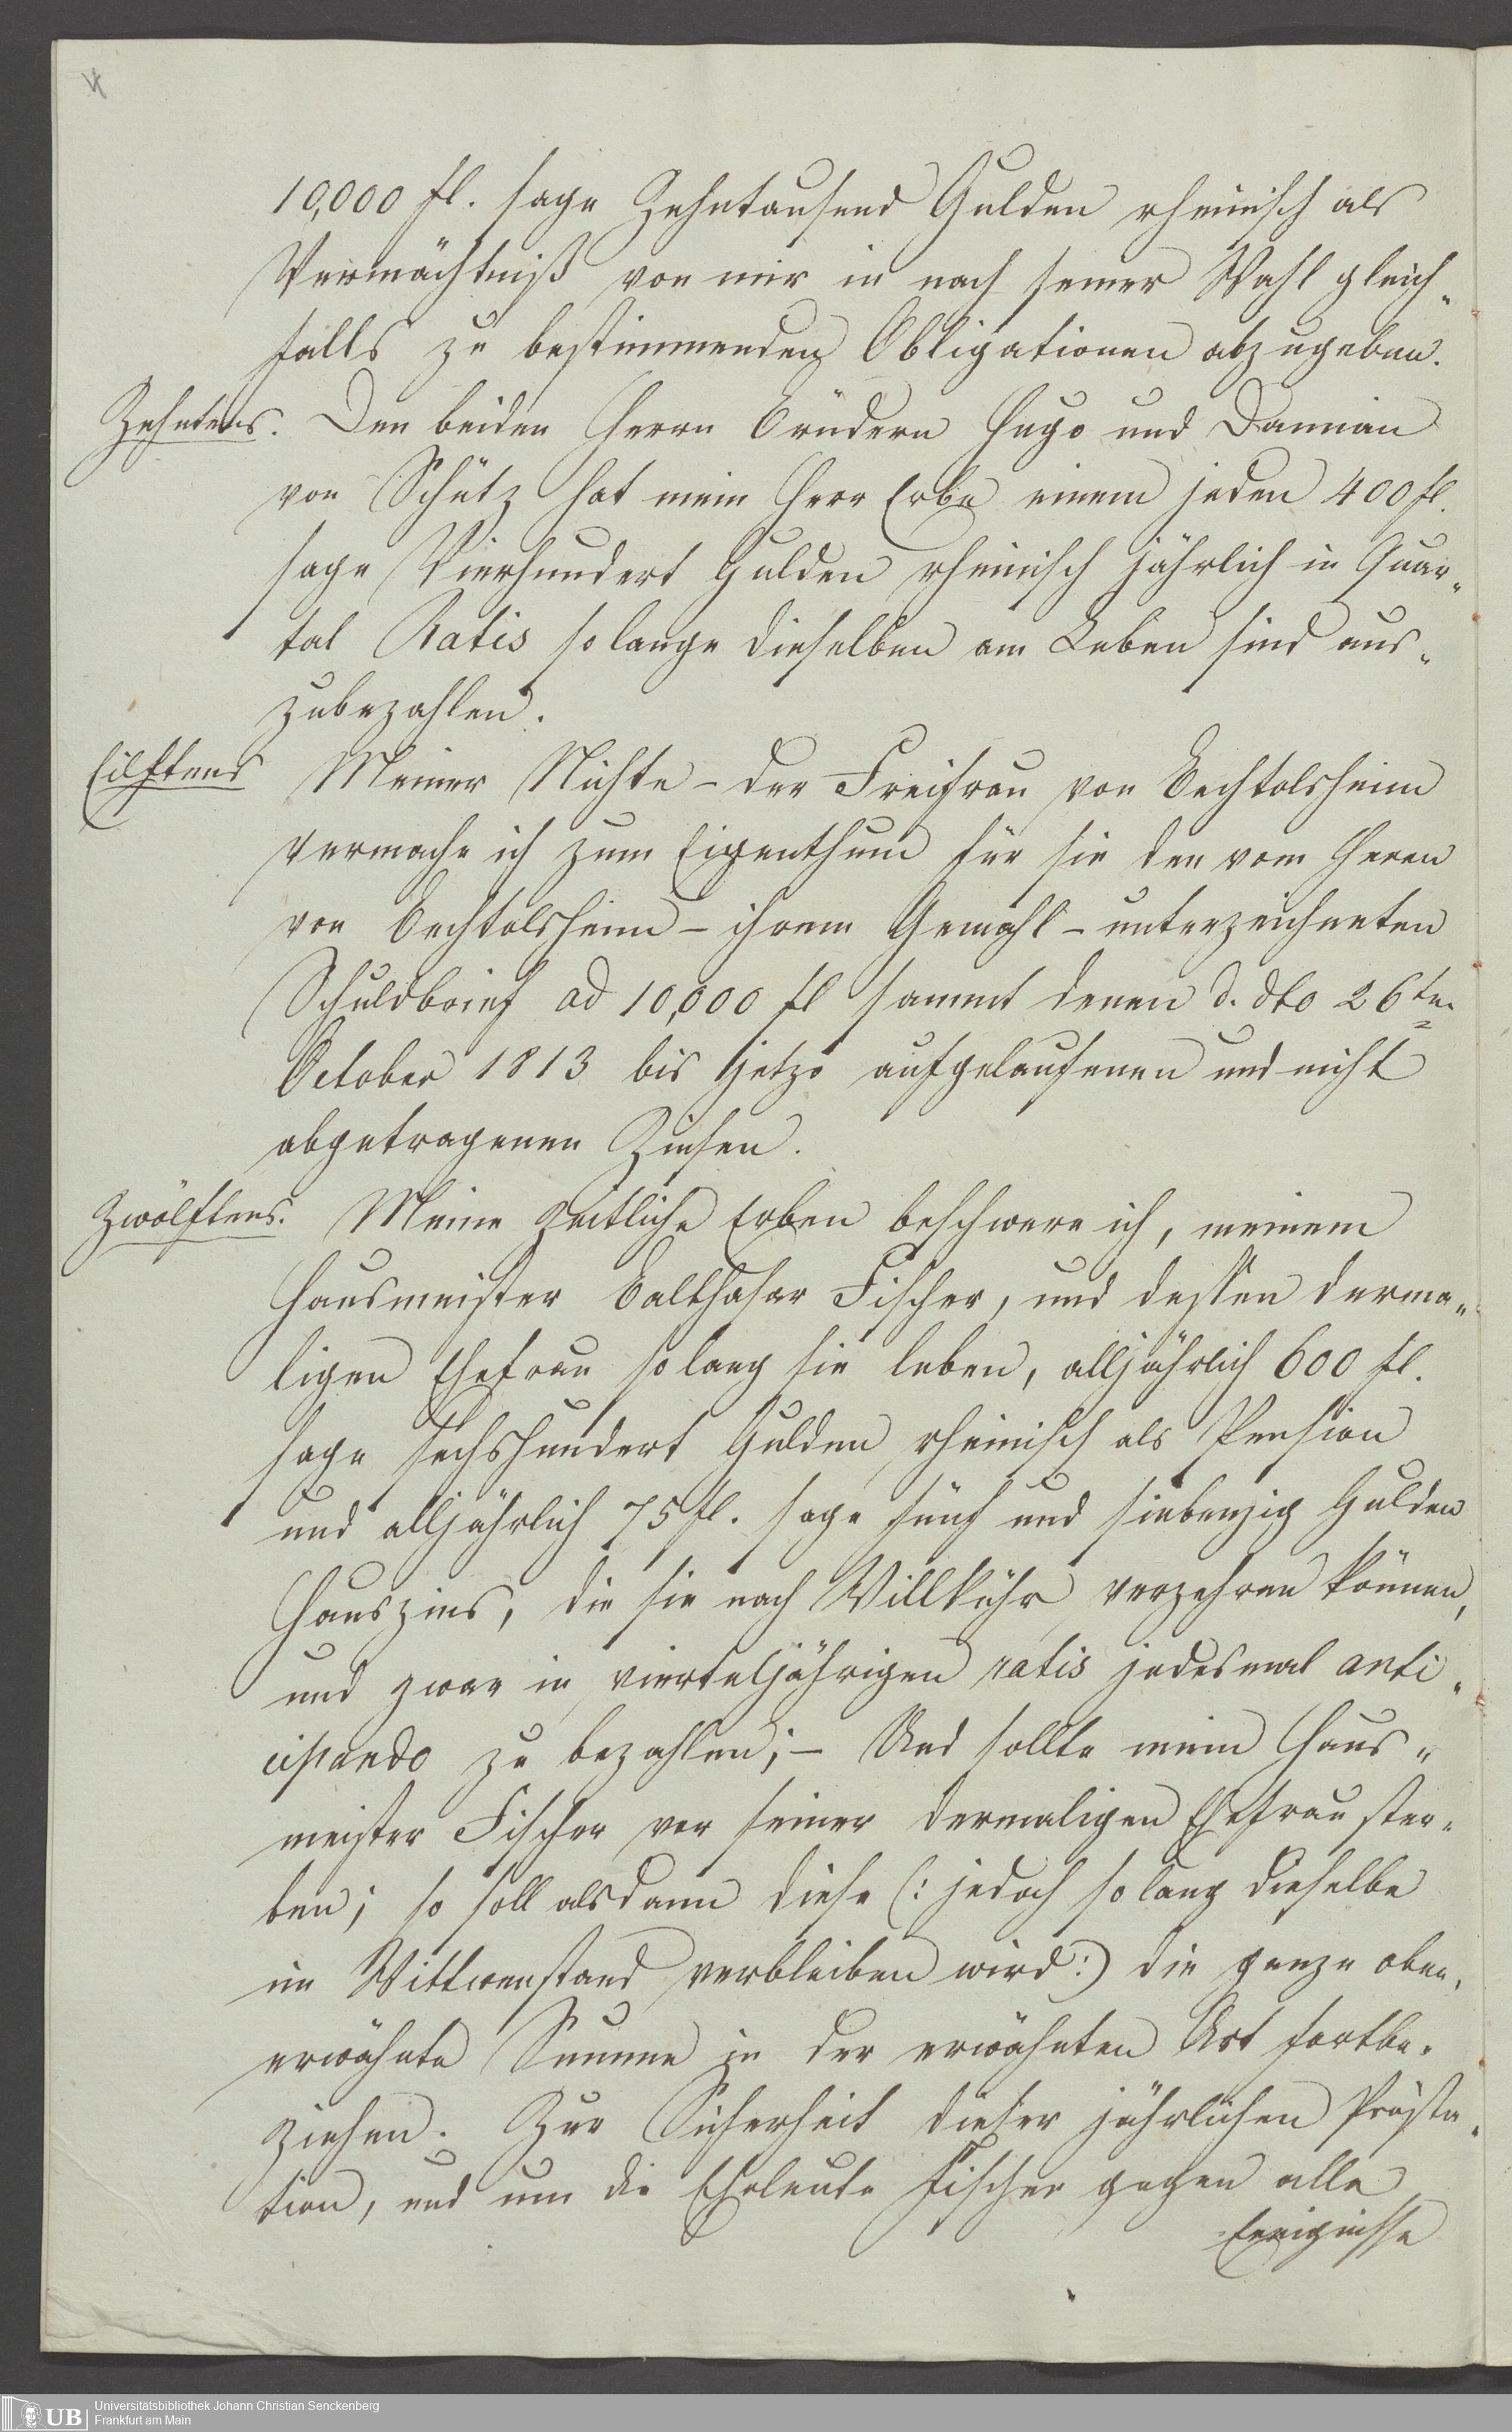 10,000 fl. sage Zehntausend Gulden rheinisch als
Vermächtniß von mir in nach seiner Wahl gleich„
falls zu bestimmenden Obligationen abzugeben.
Zehntens. Den beiden Herrn Brüdern Hugo und Damian
von Schütz hat mein Herr Erbe einem jeden 400 fl.
sage Vierhundert Gulden rheinisch jährlich in Quar„
tal Ratis so lange dieselben am Leben sind aus„
zubezahlen.
Eilftens Meiner Nichte – der Freifrau von Bechtolsheim
vermache ich zum Eigenthum für sie den vom Herrn
von Bechtolsheim – ihrem Gemahl – unterzeichneten
Schuldbrief ad 10,000 fl sammt denen d. dto 26ten
October 1813 bis jetzo aufgelaufenen und nicht
abgetragenen Zinsen.
Zwölftens. Meine zeitliche Erben beschwere ich, meinem
Hausmeister Balthasar Fischer, und dessen derma„
ligen Ehefrau so lang sie leben, alljährlich 600 fl.
sage sechshundert Gulden rheinisch als Pension
und alljährlich 75 fl. sage fünf und siebenzig Gulden
Hauszins, die sie nach Willkühr verzehren können,
und zwar in vierteljährigen ratis jedesmal anti„
cipando zu bezahlen; – Und sollte mein Haus„
meister Fischer vor seiner dermaligen Ehefrau ster„
ben; so soll alsdann diese (: jedoch so lang dieselbe
im Wittwenstand verbleiben wird :) die ganze oben„
erwähnte Summe in der erwähnten Art fortbe„
ziehen. Zur Sicherheit dieser jährlichen Prästa„
tion, und um die Eheleute Fischer gegen alle
Ereignisse
UB Universitätsbibliothek Johann Christian Senckenberg
Frankfurt am Main